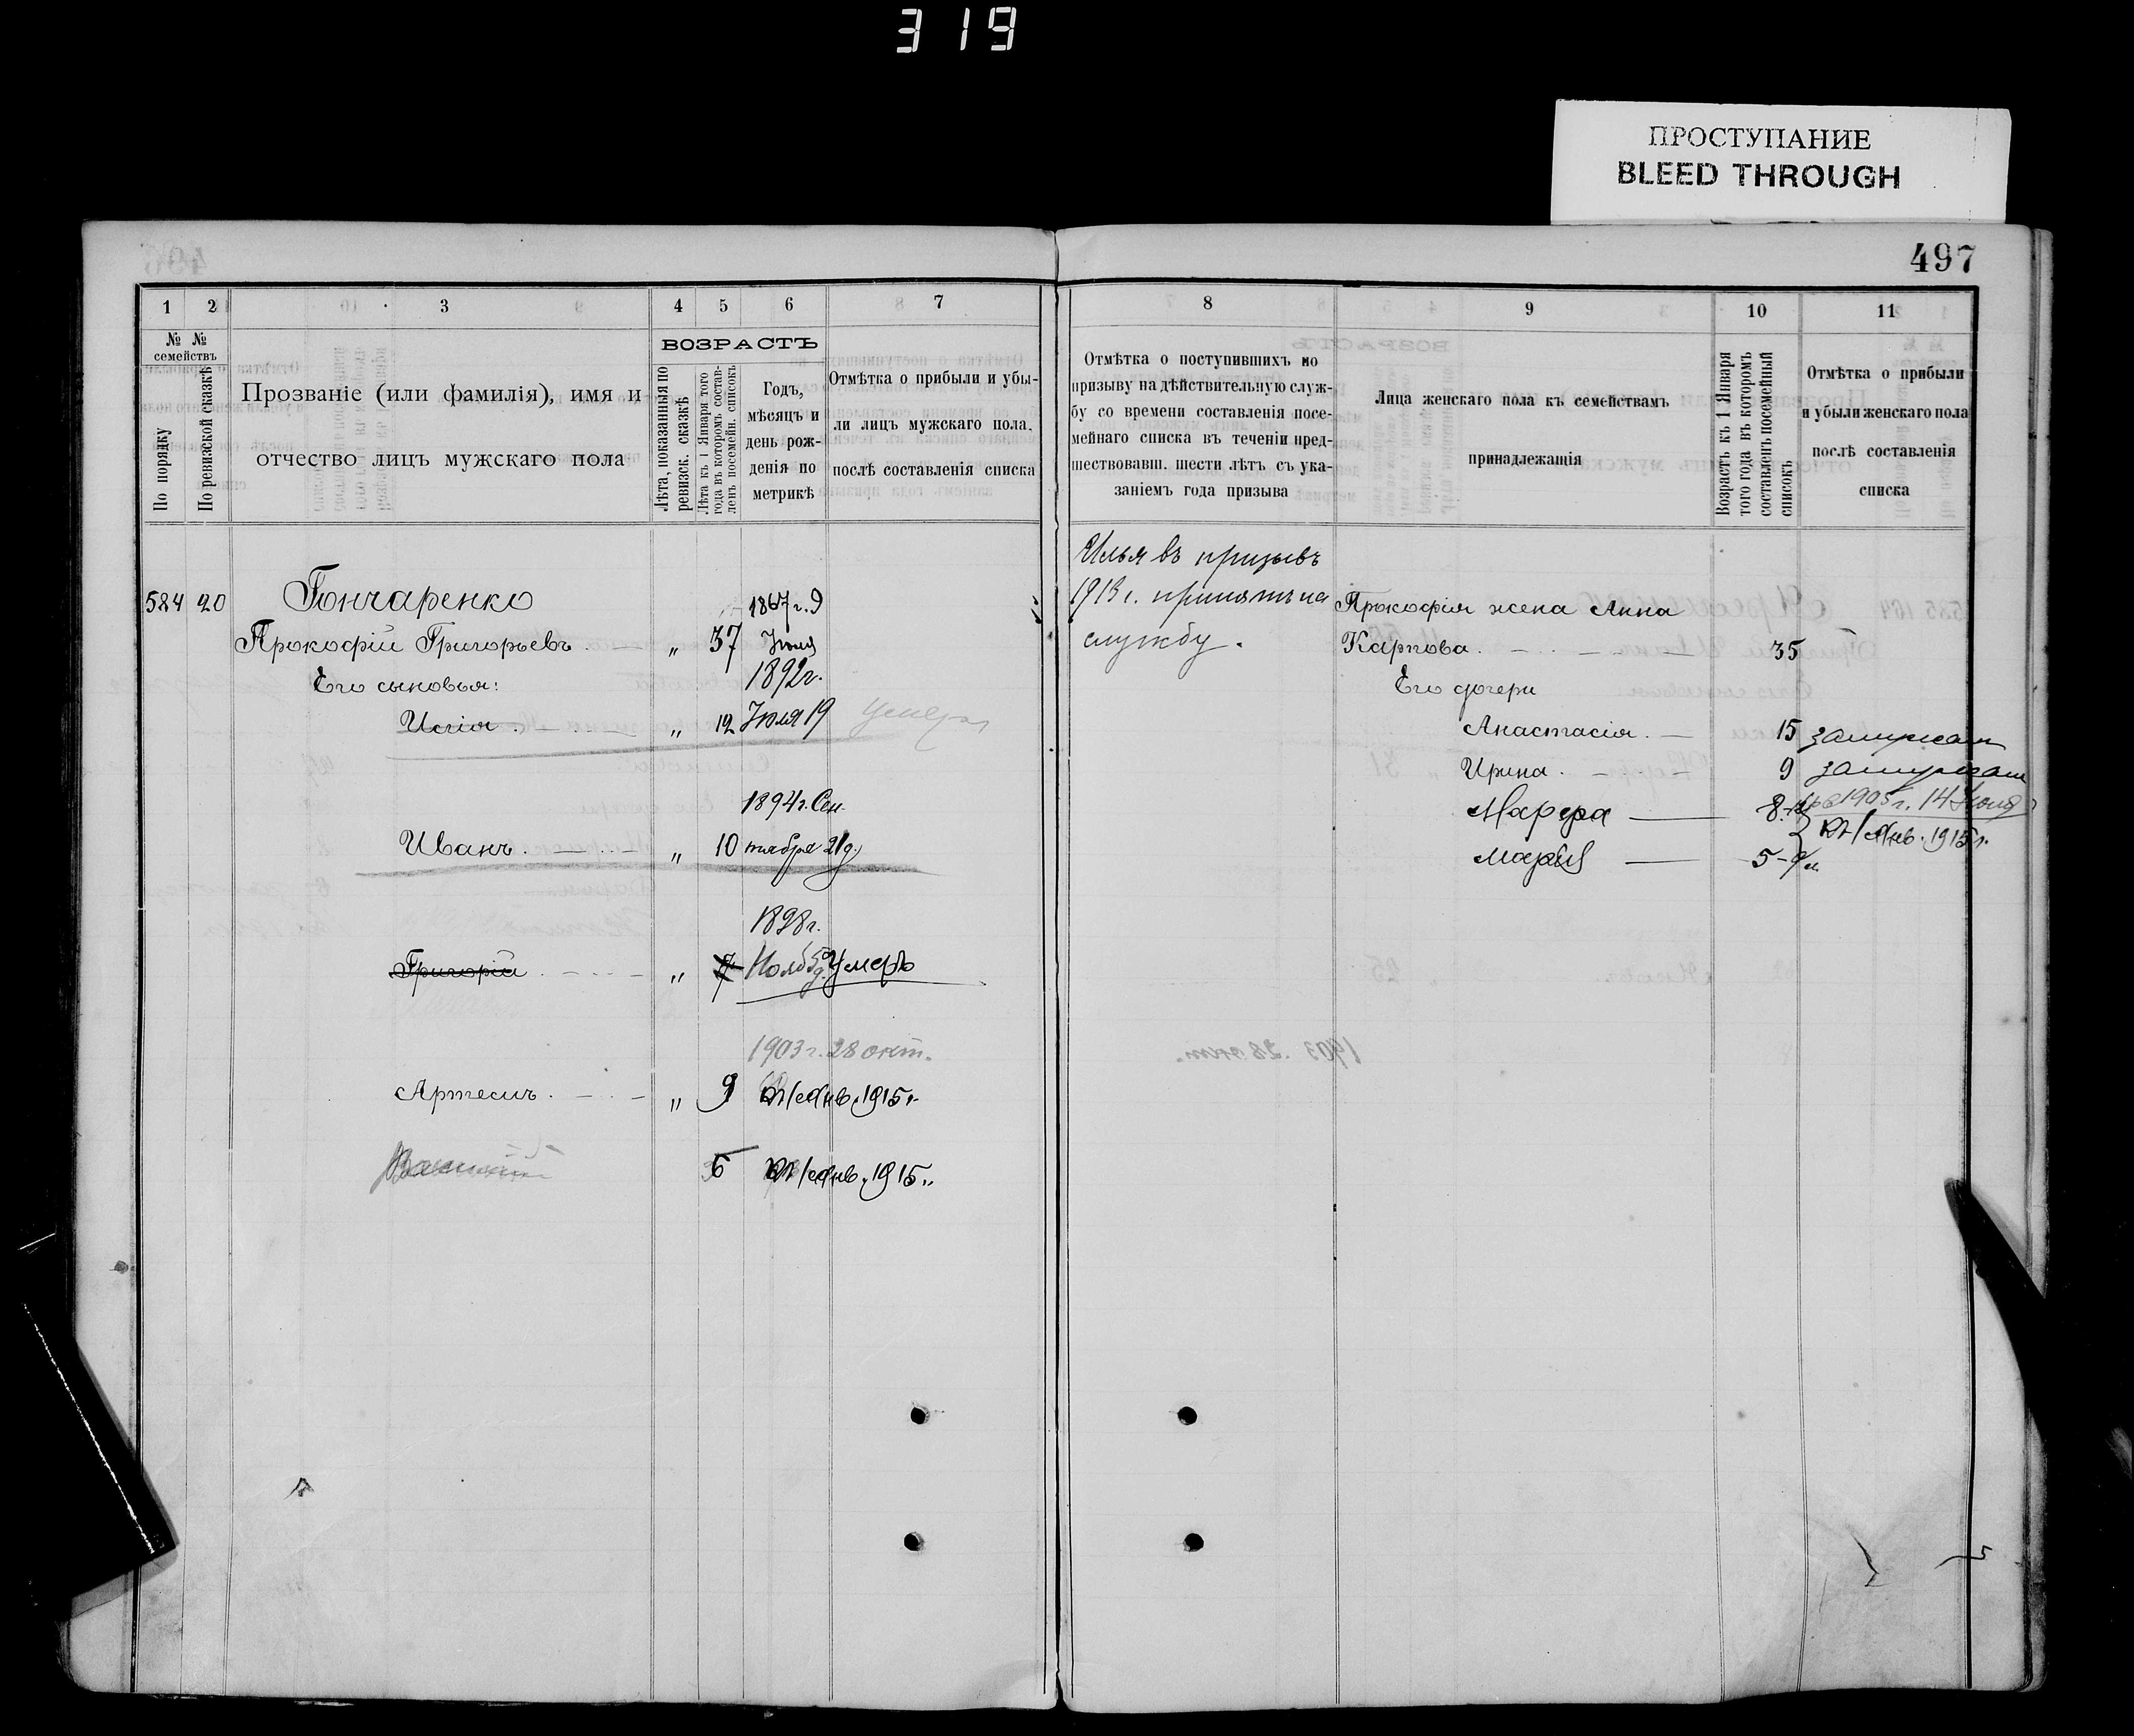 319
ПРОСТУПАНИЕ
BLEED THROUGH
497
1 2 3 4 5 6 7
№ № семействъ
По порядку
По ревизской сказкѣ
Прозваніе (или фамилія), имя и
отчество лицъ мужскаго пола
ВОЗРАСТЪ
Лѣта, показанныя по
ревизск. сказкѣ
Лѣта къ 1 Января того
года въ которомъ состав-
ленъ посемейн. списокъ
Годъ,
мѣсяцъ и
день рож-
денія по
метрикѣ
Отмѣтка о прибыли и убы-
ли лицъ мужскаго пола,
послѣ составленія списка
584 20 Гончаренко 1867 г. 9
Прокофій Григорьевъ „ 37 Іюля
Его сыновья: 1892 г.
Илія „ 12 Іюля 19 умеръ
1894 г. Сен-
Иванъ „ 10 тября 21 д.
1898 г.
Григорій „ 7 Нояб 5 д. Умеръ
1903 г. 28 окт.
Артемъ „ 9 Къ 1 Янв. 1915 г.
5 Къ 1 Янв. 1915 г.
8 9 10 11
Отмѣтка о поступившихъ по
призыву на дѣйствительную служ-
бу со времени составленія посе-
мейнаго списка въ теченіи пред-
шествовавш. шести лѣтъ съ ука-
заніемъ года призыва
Лица женскаго пола къ семействамъ
принадлежащія
Возрастъ къ 1 Января
того года въ которомъ
составленъ посемейный
списокъ
Отмѣтка о прибыли
и убыли женскаго пола
послѣ составленія
списка
Илья въ призывъ
1913 г. принятъ на
службу.
Прокофія жена Анна
Карпова 35
Его дочери
Анастасія 15 замужем
Ирина 9 замужем
Марфа 8 1905 г. 14 Іюня
Къ 1 Янв. 1915 г.
Марія 5